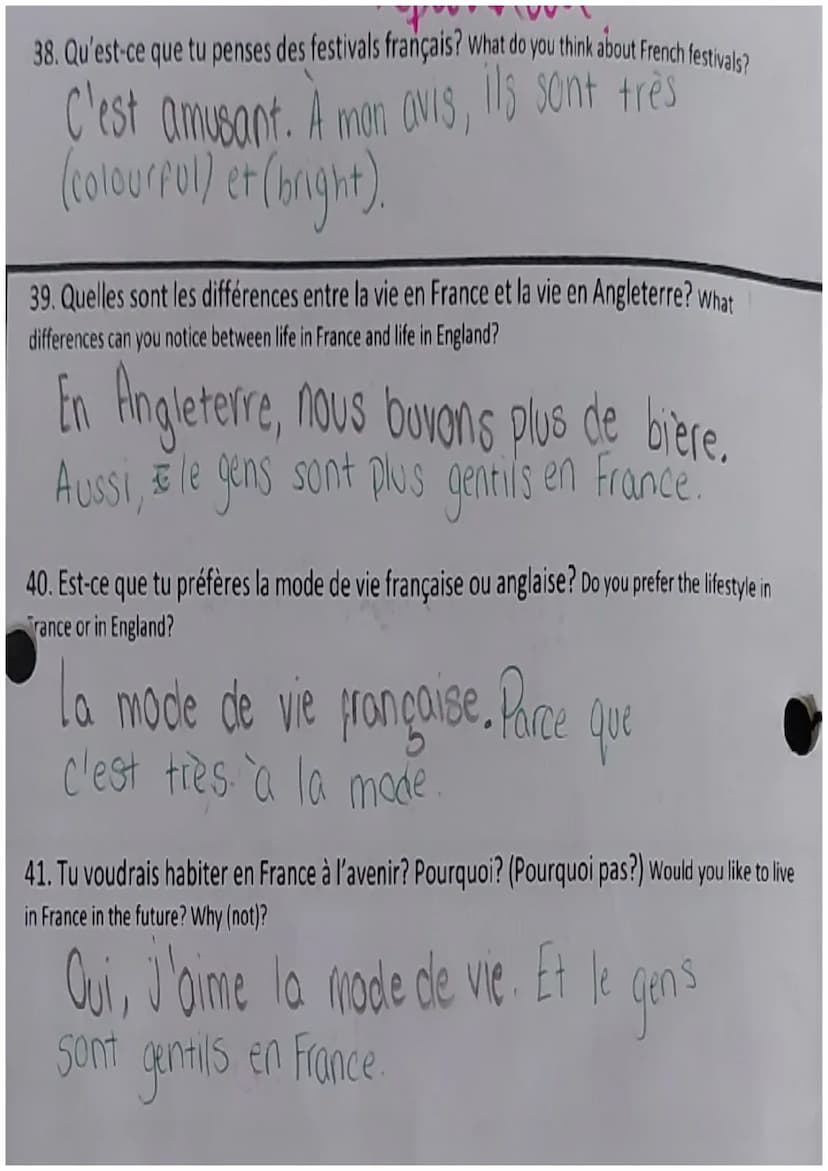 38. Qu'est-ce que tu penses des festivals français? What do you think about French festivals?
C'est amusant. À mon avis, ils sont très
(colourful) et (bright).
39. Quelles sont les différences entre la vie en France et la vie en Angleterre? What
differences can you notice between life in France and life in England?
En Angleterre, nous buvons plus de bière.
Aussi, le gens sont plus gentils en France.
40. Est-ce que tu préfères la mode de vie française ou anglaise? Do you prefer the lifestyle in
rance or in England?
La mode de vie française. Parce que
c'est très à la mode.
41. Tu voudrais habiter en France à l'avenir? Pourquoi? (Pourquoi pas?) Would you like to live
in France in the future? Why (not)?
Oui, j'aime la mode de vie. Et le gens
sont gentils en France.